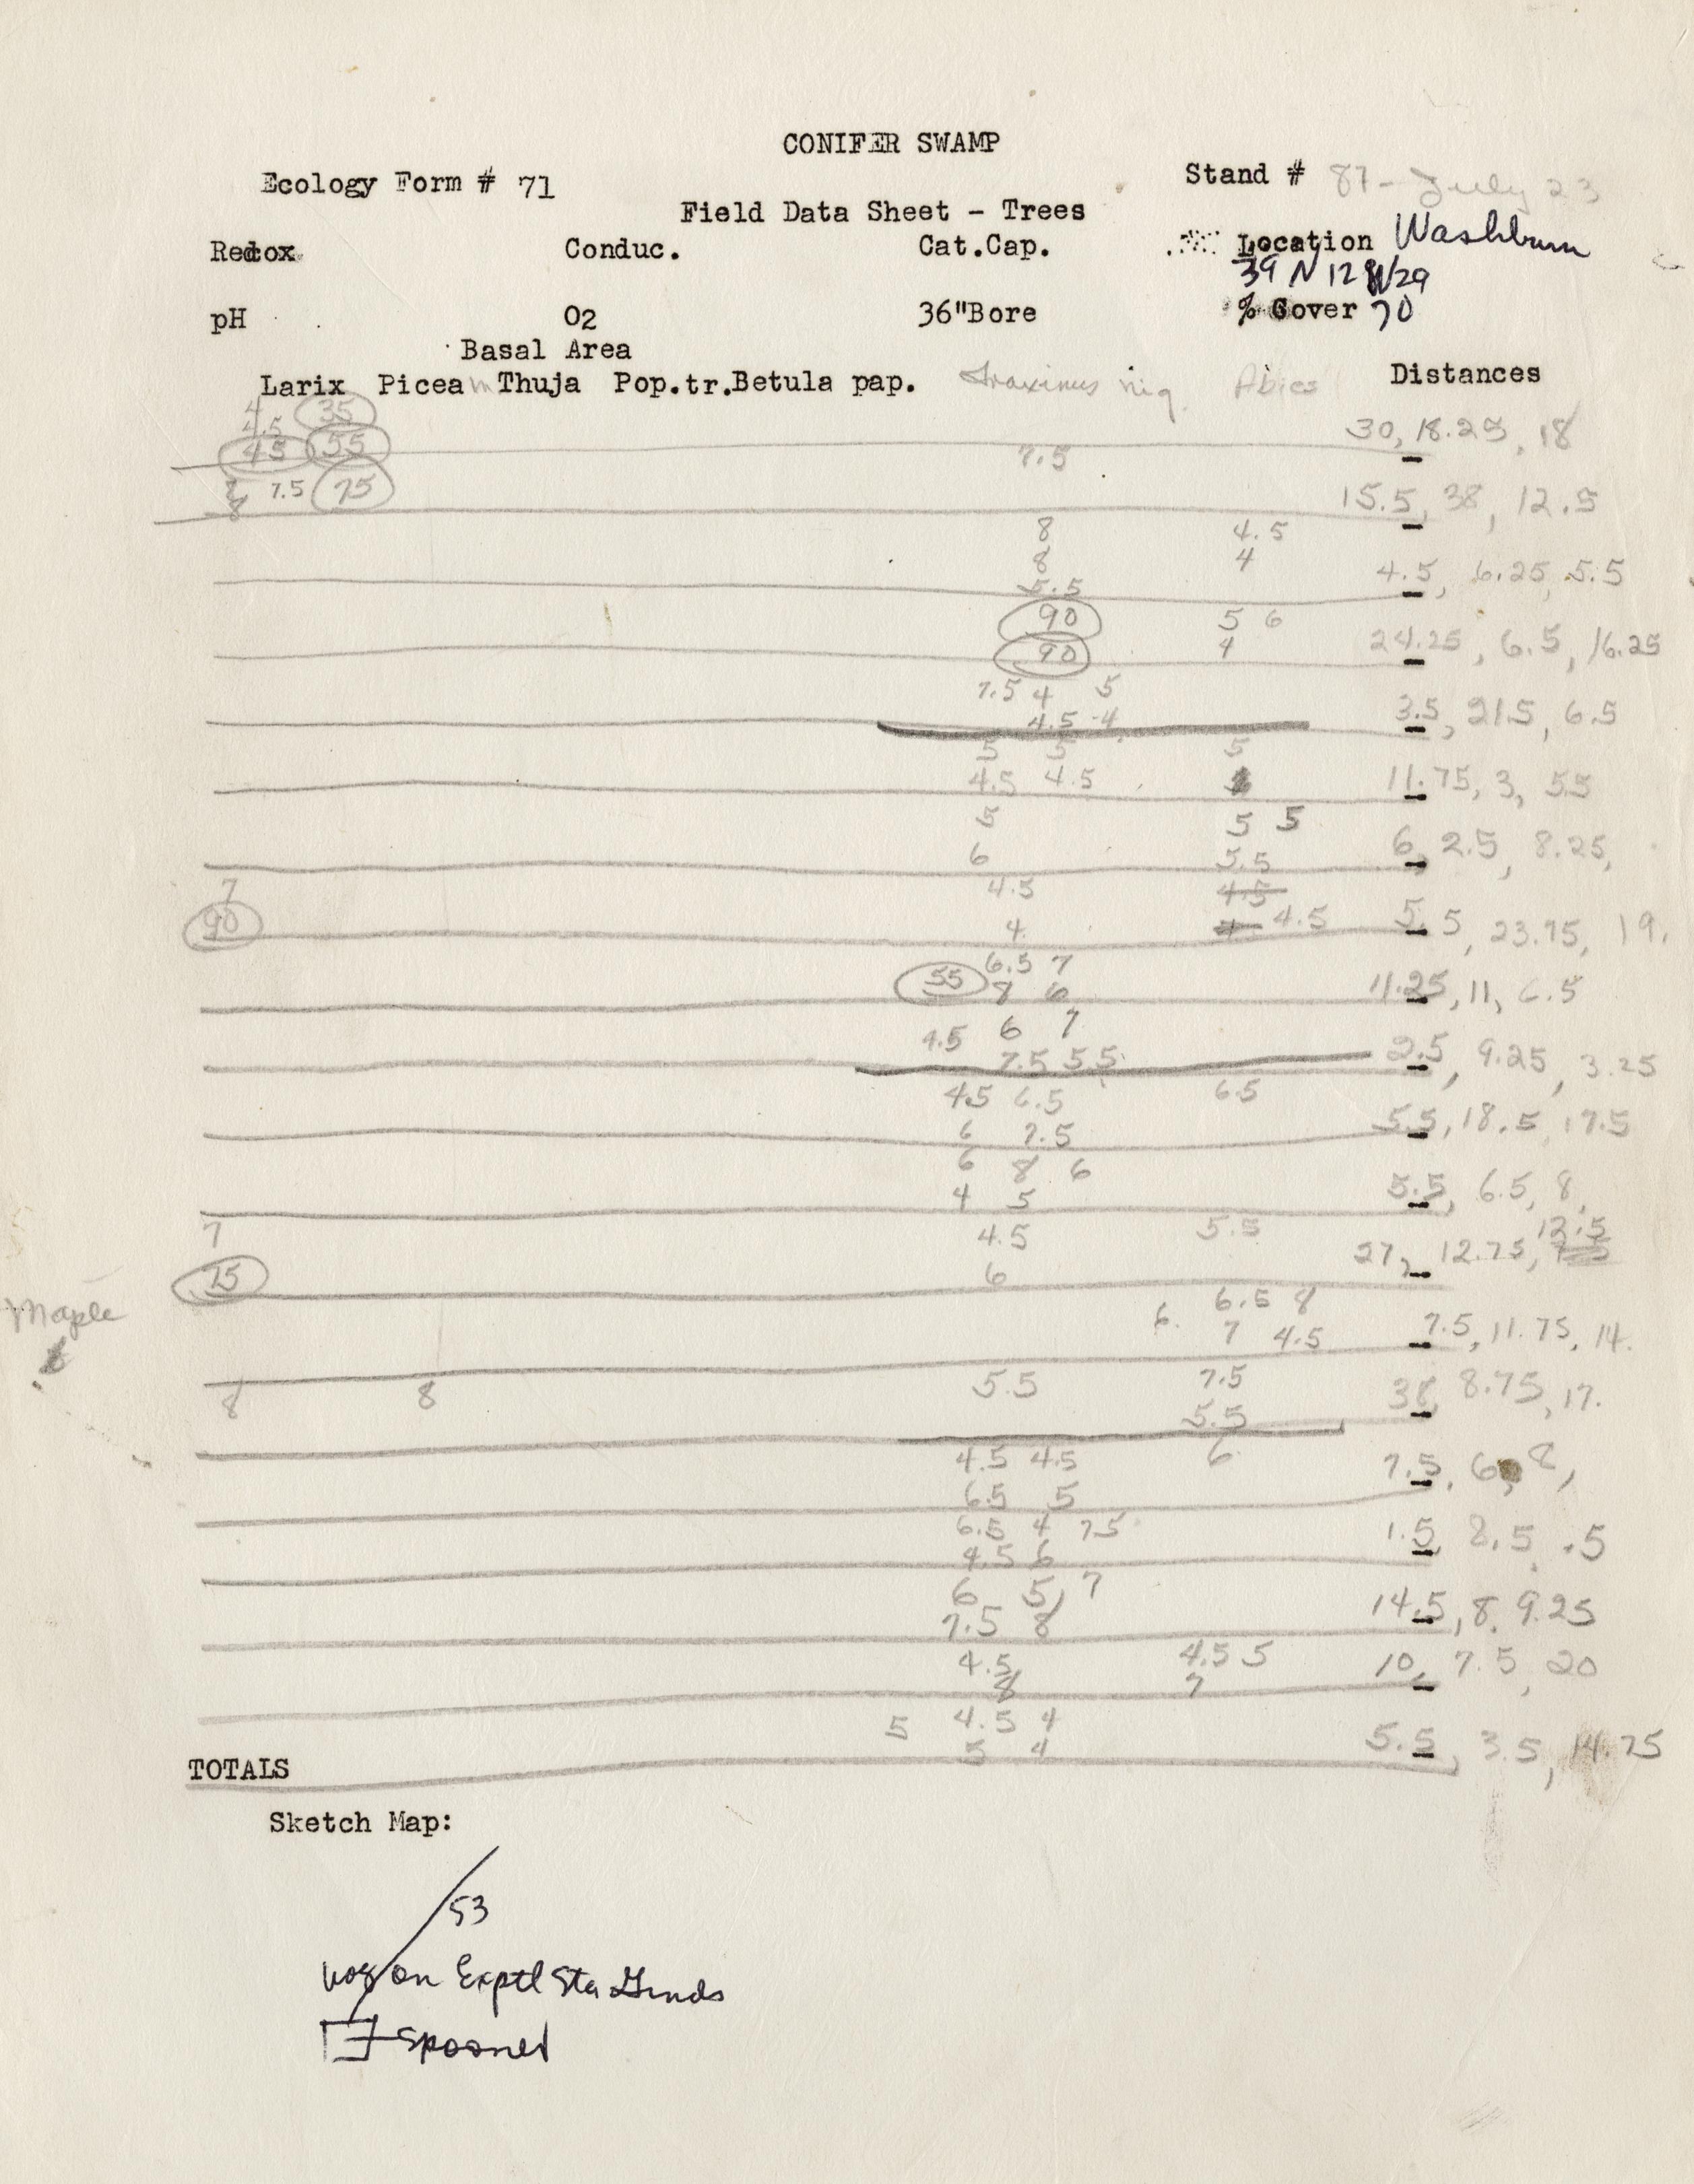 CONIFER SWAMP
Ecology Form # 71
Stand # 87 - July 23
Field Data Sheet - Trees
Redox Conduc. Cat.Cap. Location Washburn
39 N 12 W 29
pH O2 36"Bore % Cover 70
Basal Area
Larix Picea m Thuja Pop.tr. Betula pap. Fraxinus nig. Abies Distances
4 35
4.5 30, 18.25, 18
45 55 7.5
7 7.5 75 15.5, 38, 12.5
8
8 4.5
8 4 4.5, 6.25, 5.5
5.5
90 5 6
90 4 24.25, 6.5, 16.25
7.5 4 5
4.5 4 3.5, 21.5, 6.5
5 5 5
4.5 4.5 11.75, 3, 5.5
5 5 5
6 5.5 6, 2.5, 8.25,
7 4.5 4.5
90 4 4 4.5 5.5, 23.75, 19.
6.5 7
55 8 6 11.25, 11, 6.5
4.5 6 7
7.5 5.5 2.5, 9.25, 3.25
4.5 6.5 6.5
6 7.5 5.5, 18.5, 17.5
6 8 6
4 5 5.5, 6.5, 8,
7 4.5 5.5 12.5
75 6 27, 12.75,
Maple 6.5 8
6. 7 4.5 7.5, 11.75, 14.
8 8 5.5 7.5 38, 8.75, 17.
5.5
4.5 4.5 6
6.5 5 7.5, 6, 8,
6.5 4 7.5
4.5 6 1.5, 8.5, .5
6 5, 7
7.5 8 14.5, 8, 9.25
4.5 4.5 5
8 7 10, 7.5, 20
5 4.5 4
5 4 5.5, 3.5, 14.75
TOTALS
Sketch Map:
53
on Exptl Sta Grnds
Spooner